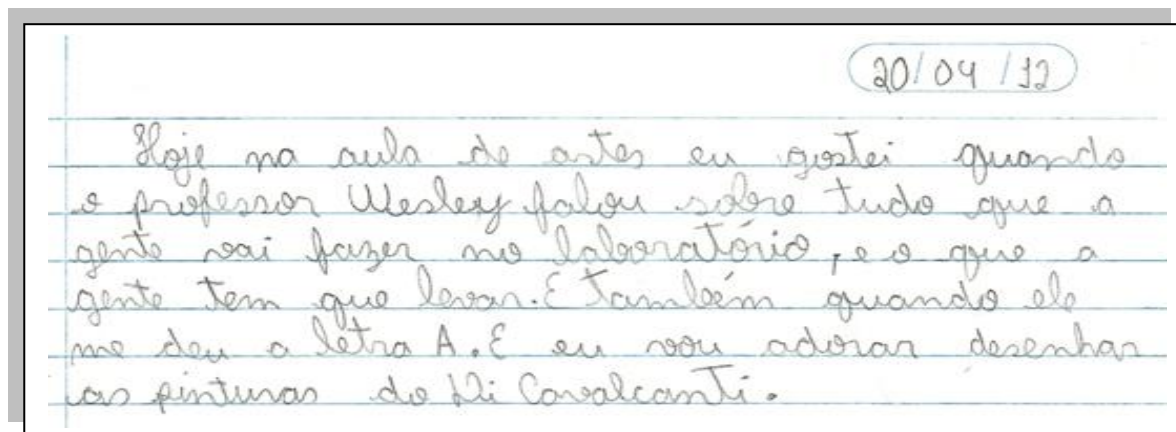 20/04/12
Hoje na aula de artes eu gostei quando
o professor Wesley falou sobre tudo que a
gente vai fazer no laboratório, e o que a
gente tem que levar. E também quando ele
me deu a letra A. E eu vou adorar desenhar
as pinturas do Di Cavalcanti.